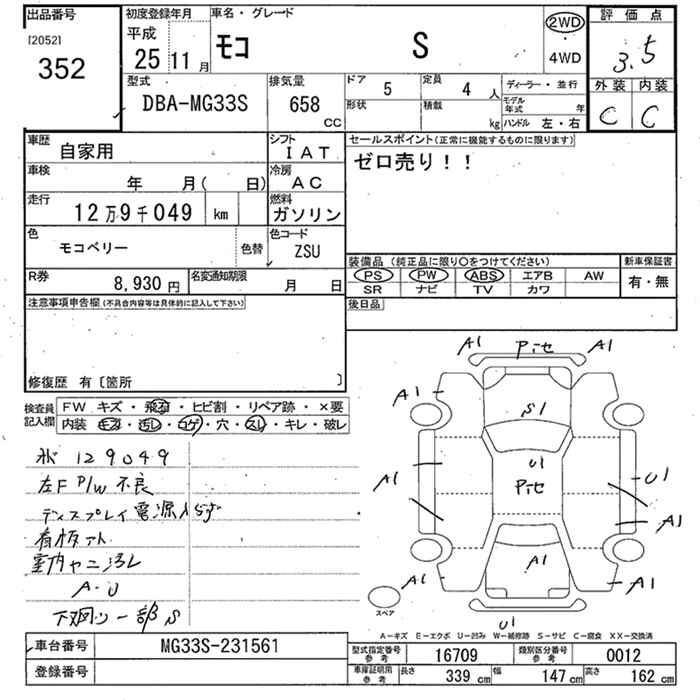 出品番号
[2052]
352
初度登録年月
平成
25 11 月
車名・グレード
モコ S
2WD
4WD
評価点
3.5
外装 内装
C C
型式
DBA-MG33S
排気量
658 CC
ドア 5
形状
定員 4 人
積載 kg
ディーラー・並行
モデル年式 年
ハンドル 左・右
車歴 自家用
シフト IAT
車検 年 月( 日)
冷房 AC
走行 12万9千049 km
燃料 ガソリン
色 モコベリー 色替
色コード ZSU
R券 8,930 円
名変通知期限 月 日
セールスポイント(正常に機能するものに限ります)
ゼロ売り!!
装備品 (純正品に限り○をつけてください)
新車保証書
PS PW ABS エアB AW
SR ナビ TV カワ
有・無
後日品
注意事項申告欄(不具合内容等は具体的に記入して下さい)
修復歴 有〔箇所 〕
検査員記入欄
FW キズ・飛石・ヒビ割・リペア跡・×要
内装 キズ・汚レ・コゲ・穴・スレ・キレ・破レ
129049
左F P/W 不良
ディスプレイ電源入らず
看板アト
室内ヤニ汚レ
A・U
下廻り一部S
A1 Pitセ A1
A1 A1
S1
U1
A1 Pitセ U1
A1
A1 A1 A1
スペア
U1
A-キズ E-エクボ U-凹み W-補修跡 S-サビ C-腐食 XX-交換済
車台番号 MG33S-231561
登録番号
型式指定番号参考 16709
類別区分番号参考 0012
車庫証明用参考
長さ 339 cm
幅 147 cm
高さ 162 cm